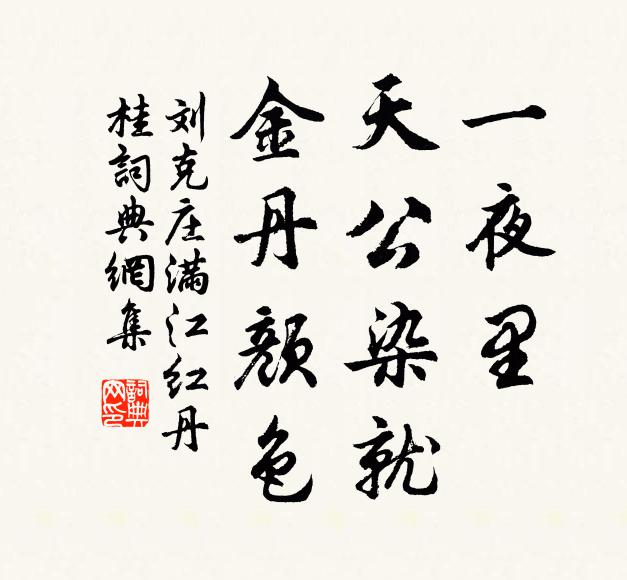 一夜里
天公染就
金丹颜色
刘克庄满江红丹
桂詞典網集
詞典
网印